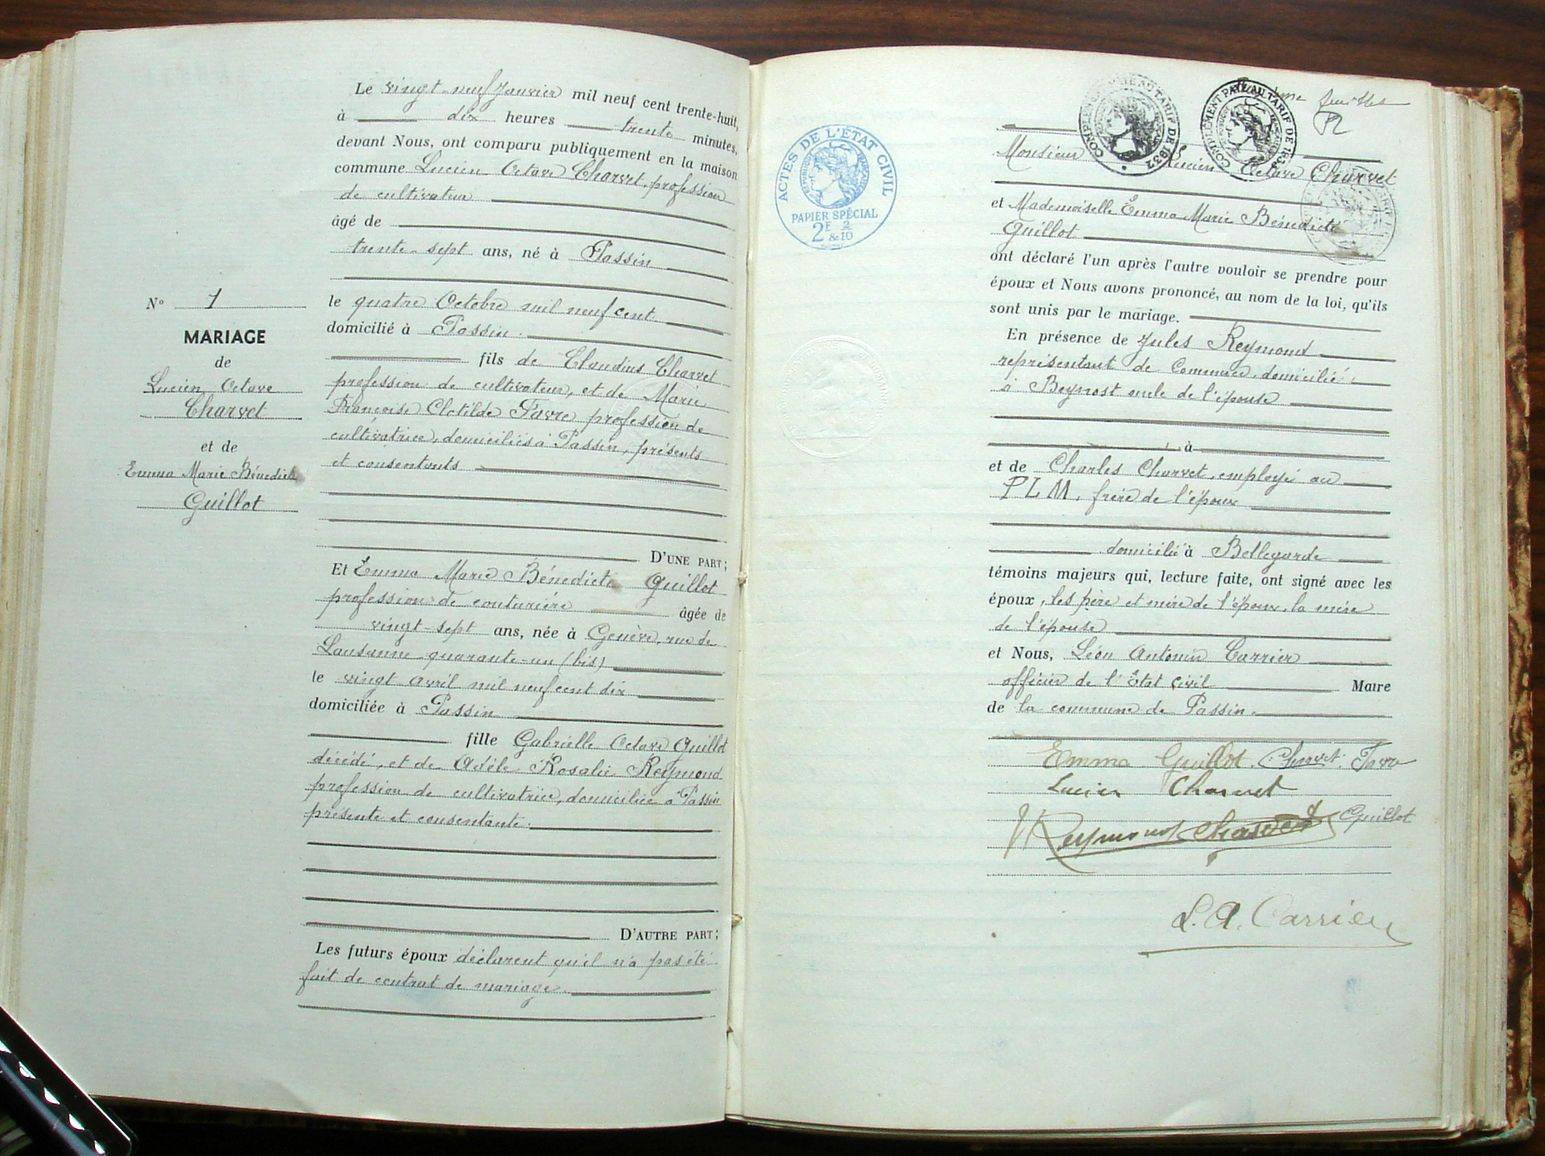 Le vingt-neuf Janvier mil neuf cent trente-huit,
à dix heures trente minutes,
devant Nous, ont comparu publiquement en la maison
commune Lucien Octave Charvet, profession
de cultivateur
âgé de
trente-sept ans, né à Passin
le quatre Octobre mil neuf cent
domicilié à Passin.
fils de Claudius Charvet
profession de cultivateur, et de Marie
Françoise Clotilde Favre profession de
cultivatrice, domiciliés à Passin, présents
et consentants
D'UNE PART;
Et Emma Marie Bénédicte Guillot
profession de couturière âgée de
vingt-sept ans, née à Genève, rue de
Lausanne quarante-un (bis)
le vingt avril mil neuf cent dix
domiciliée à Passin
fille Gabrielle Octave Guillot
décédé, et de Adèle Rosalie Reymond
profession de cultivatrice, domiciliée à Passin
présente et consentante.
D'AUTRE PART;
Les futurs époux déclarent qu'il n'a pas été
fait de contrat de mariage.
N° 1
MARIAGE
de
Lucien Octave
Charvet
et de
Emma Marie Bénédicte
Guillot
ACTES DE L'ÉTAT CIVIL
PAPIER SPÉCIAL
2F 2
&10
COMPLEMENT PAYÉ AU TARIF DE 1932
COMPLEMENT PAYÉ AU TARIF DE 1935
feuillet
Monsieur Lucien Octave Charvet
et Mademoiselle Emma Marie Bénédicte
Guillot
ont déclaré l'un après l'autre vouloir se prendre pour
époux et Nous avons prononcé, au nom de la loi, qu'ils
sont unis par le mariage.
En présence de Jules Reymond
représentant de Commerce, domicilié
à Beynost oncle de l'épouse
à
et de Charles Charvet, employé au
PLM, frère de l'époux
domicilié à Bellegarde
témoins majeurs qui, lecture faite, ont signé avec les
époux, les père et mère de l'époux, la mère
de l'épouse
et Nous, Léon Antonin Carrier
officier de l'Etat Civil Maire
de la commune de Passin.
Emma Guillot C. Charvet Favre
Lucien Charvet
J Reymond Charvet Guillot
L. A. Carrier